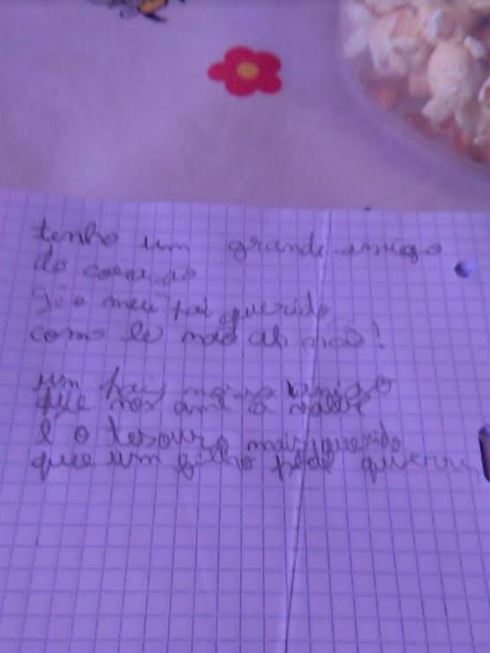 tenho um grande amigo
do coração
é o meu pai querido
como le não ah não!
um pai
que nos ame a valer
é o tesouro mais querido
que um filho pode querer